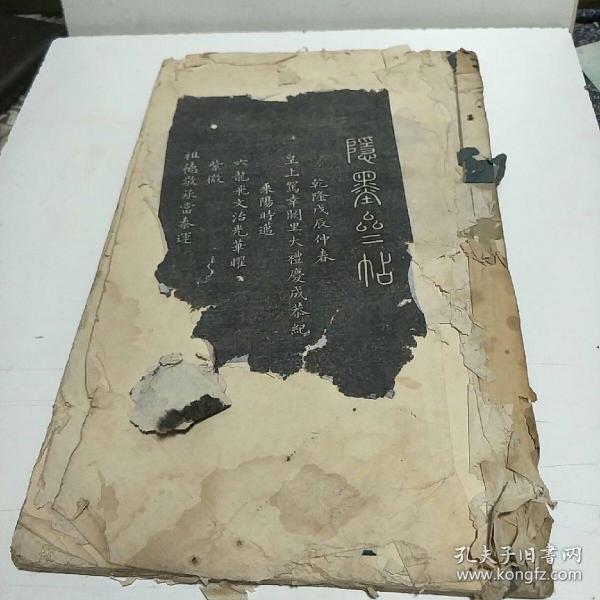 隱墨齋帖
乾隆戊辰仲春
皇上駕幸闕里大禮慶成恭紀
乘陽時邁
六龍飛文治光華曜
紫微
祖德敬承當泰運
孔夫子旧书网
www.kongfz.com